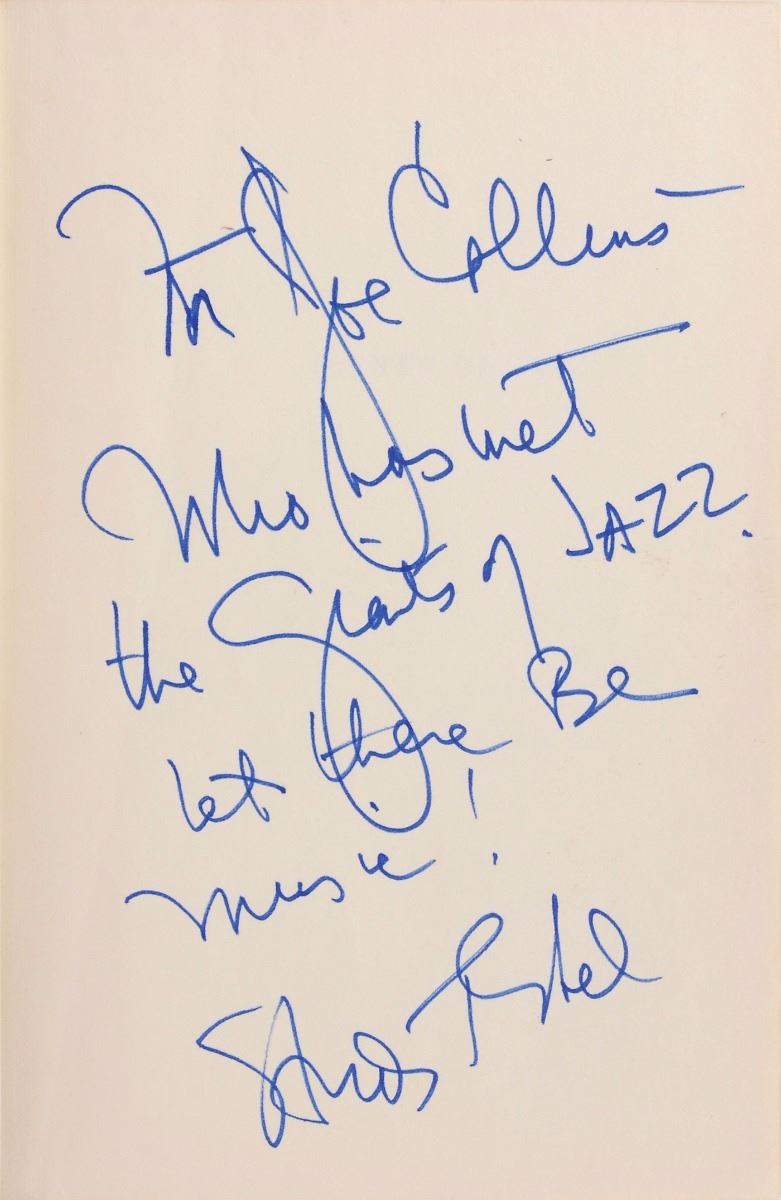 For Joe Collins
Who has met
the Giants of JAZZ.
let there Be
music!
Studs Terkel